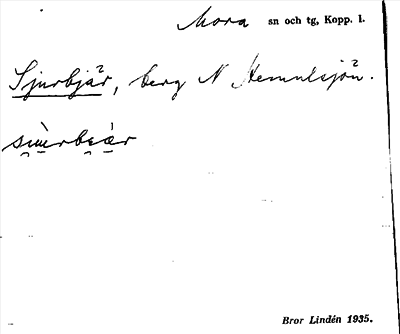 Mora sn och tg, Kopp. l.
Sjurbjär, berg N Hemulsjön.
Bror Lindén 1935.